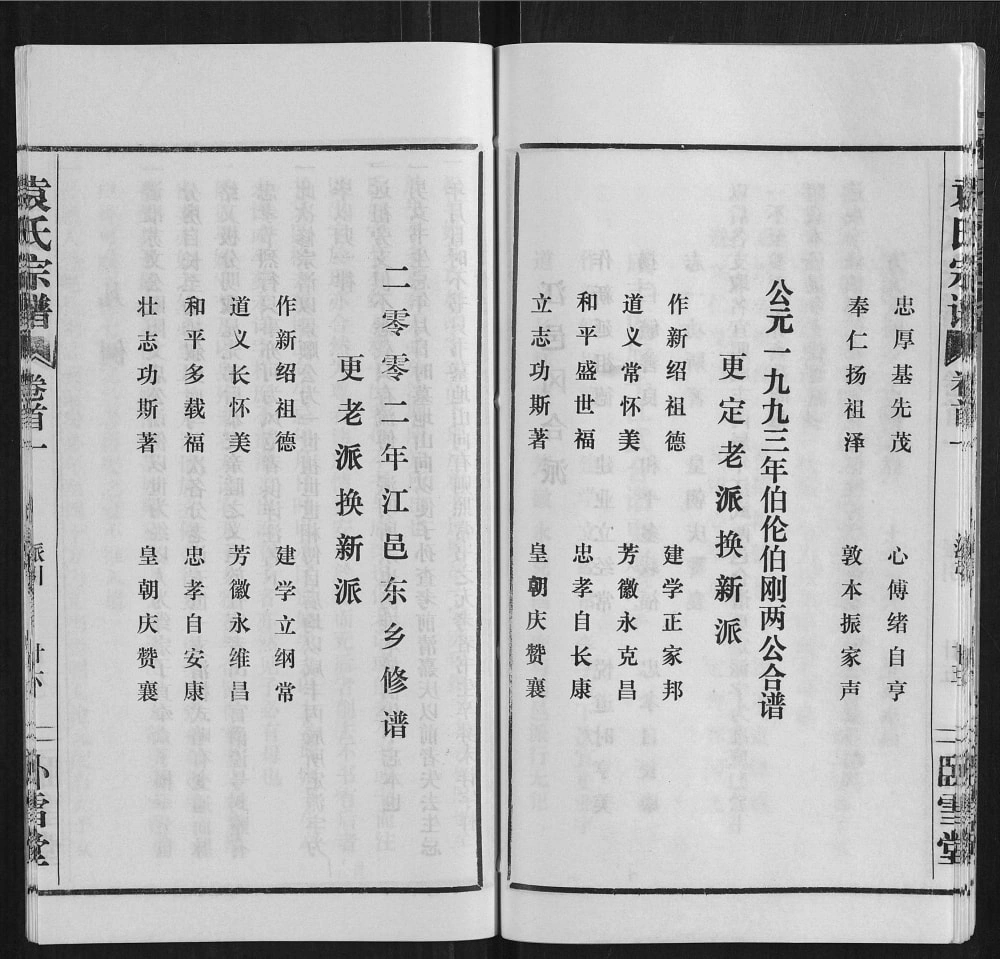 袁氏宗谱
卷首一
卧雪堂
忠厚基先茂 心傅绪自亨
奉仁扬祖泽 敦本振家声
公元一九九三年伯伦伯刚两公合谱
更定老派换新派
作新绍祖德 建学正家邦
道义常怀美 芳徽永克昌
和平盛世福 忠孝自长康
立志功斯著 皇朝庆赞襄
二零零二年江邑东乡修谱
更老派换新派
作新绍祖德 建学立纲常
道义长怀美 芳徽永维昌
和平多载福 忠孝自安康
壮志功斯著 皇朝庆赞襄
袁氏宗谱
卷首一
卧雪堂